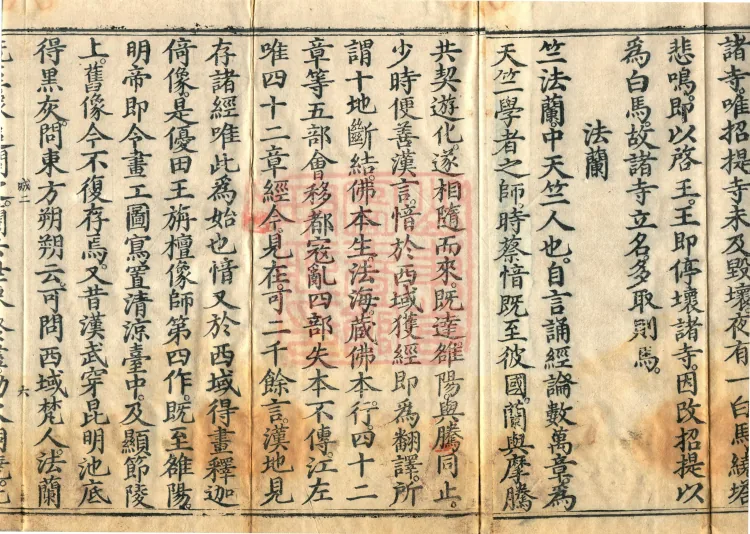 諸寺唯招提寺未及毀壞夜有一白馬繞塔
悲鳴。即以啓王。王即停壞諸寺。因改招提以
為白馬。故諸寺立名多取則焉。
法蘭
竺法蘭中天竺人也。自言誦經論數萬章。為
天竺學者之師。時蔡愔既至彼國。蘭與摩騰
共契遊化。遂相隨而來。既達雒陽。與騰同止。
少時便善漢言。愔於西域獲經即為翻譯。所
謂十地斷結佛本生。法海。藏佛本。行。四十二
章等五部會移都寇亂四部失本不傳。江左
唯四十二章經今。見在。可二千餘言。漢地見
存諸經唯此為始也愔又於西域得畫釋迦
倚像。是優田王旃檀像師第四作。既至雒陽。
明帝即令畫工圖寫置清涼臺中。及顯節陵
上。舊像今不復存焉。又昔漢武穿昆明池底
二 六
得黑灰。問東方朔朔云。可問西域梵人。法蘭